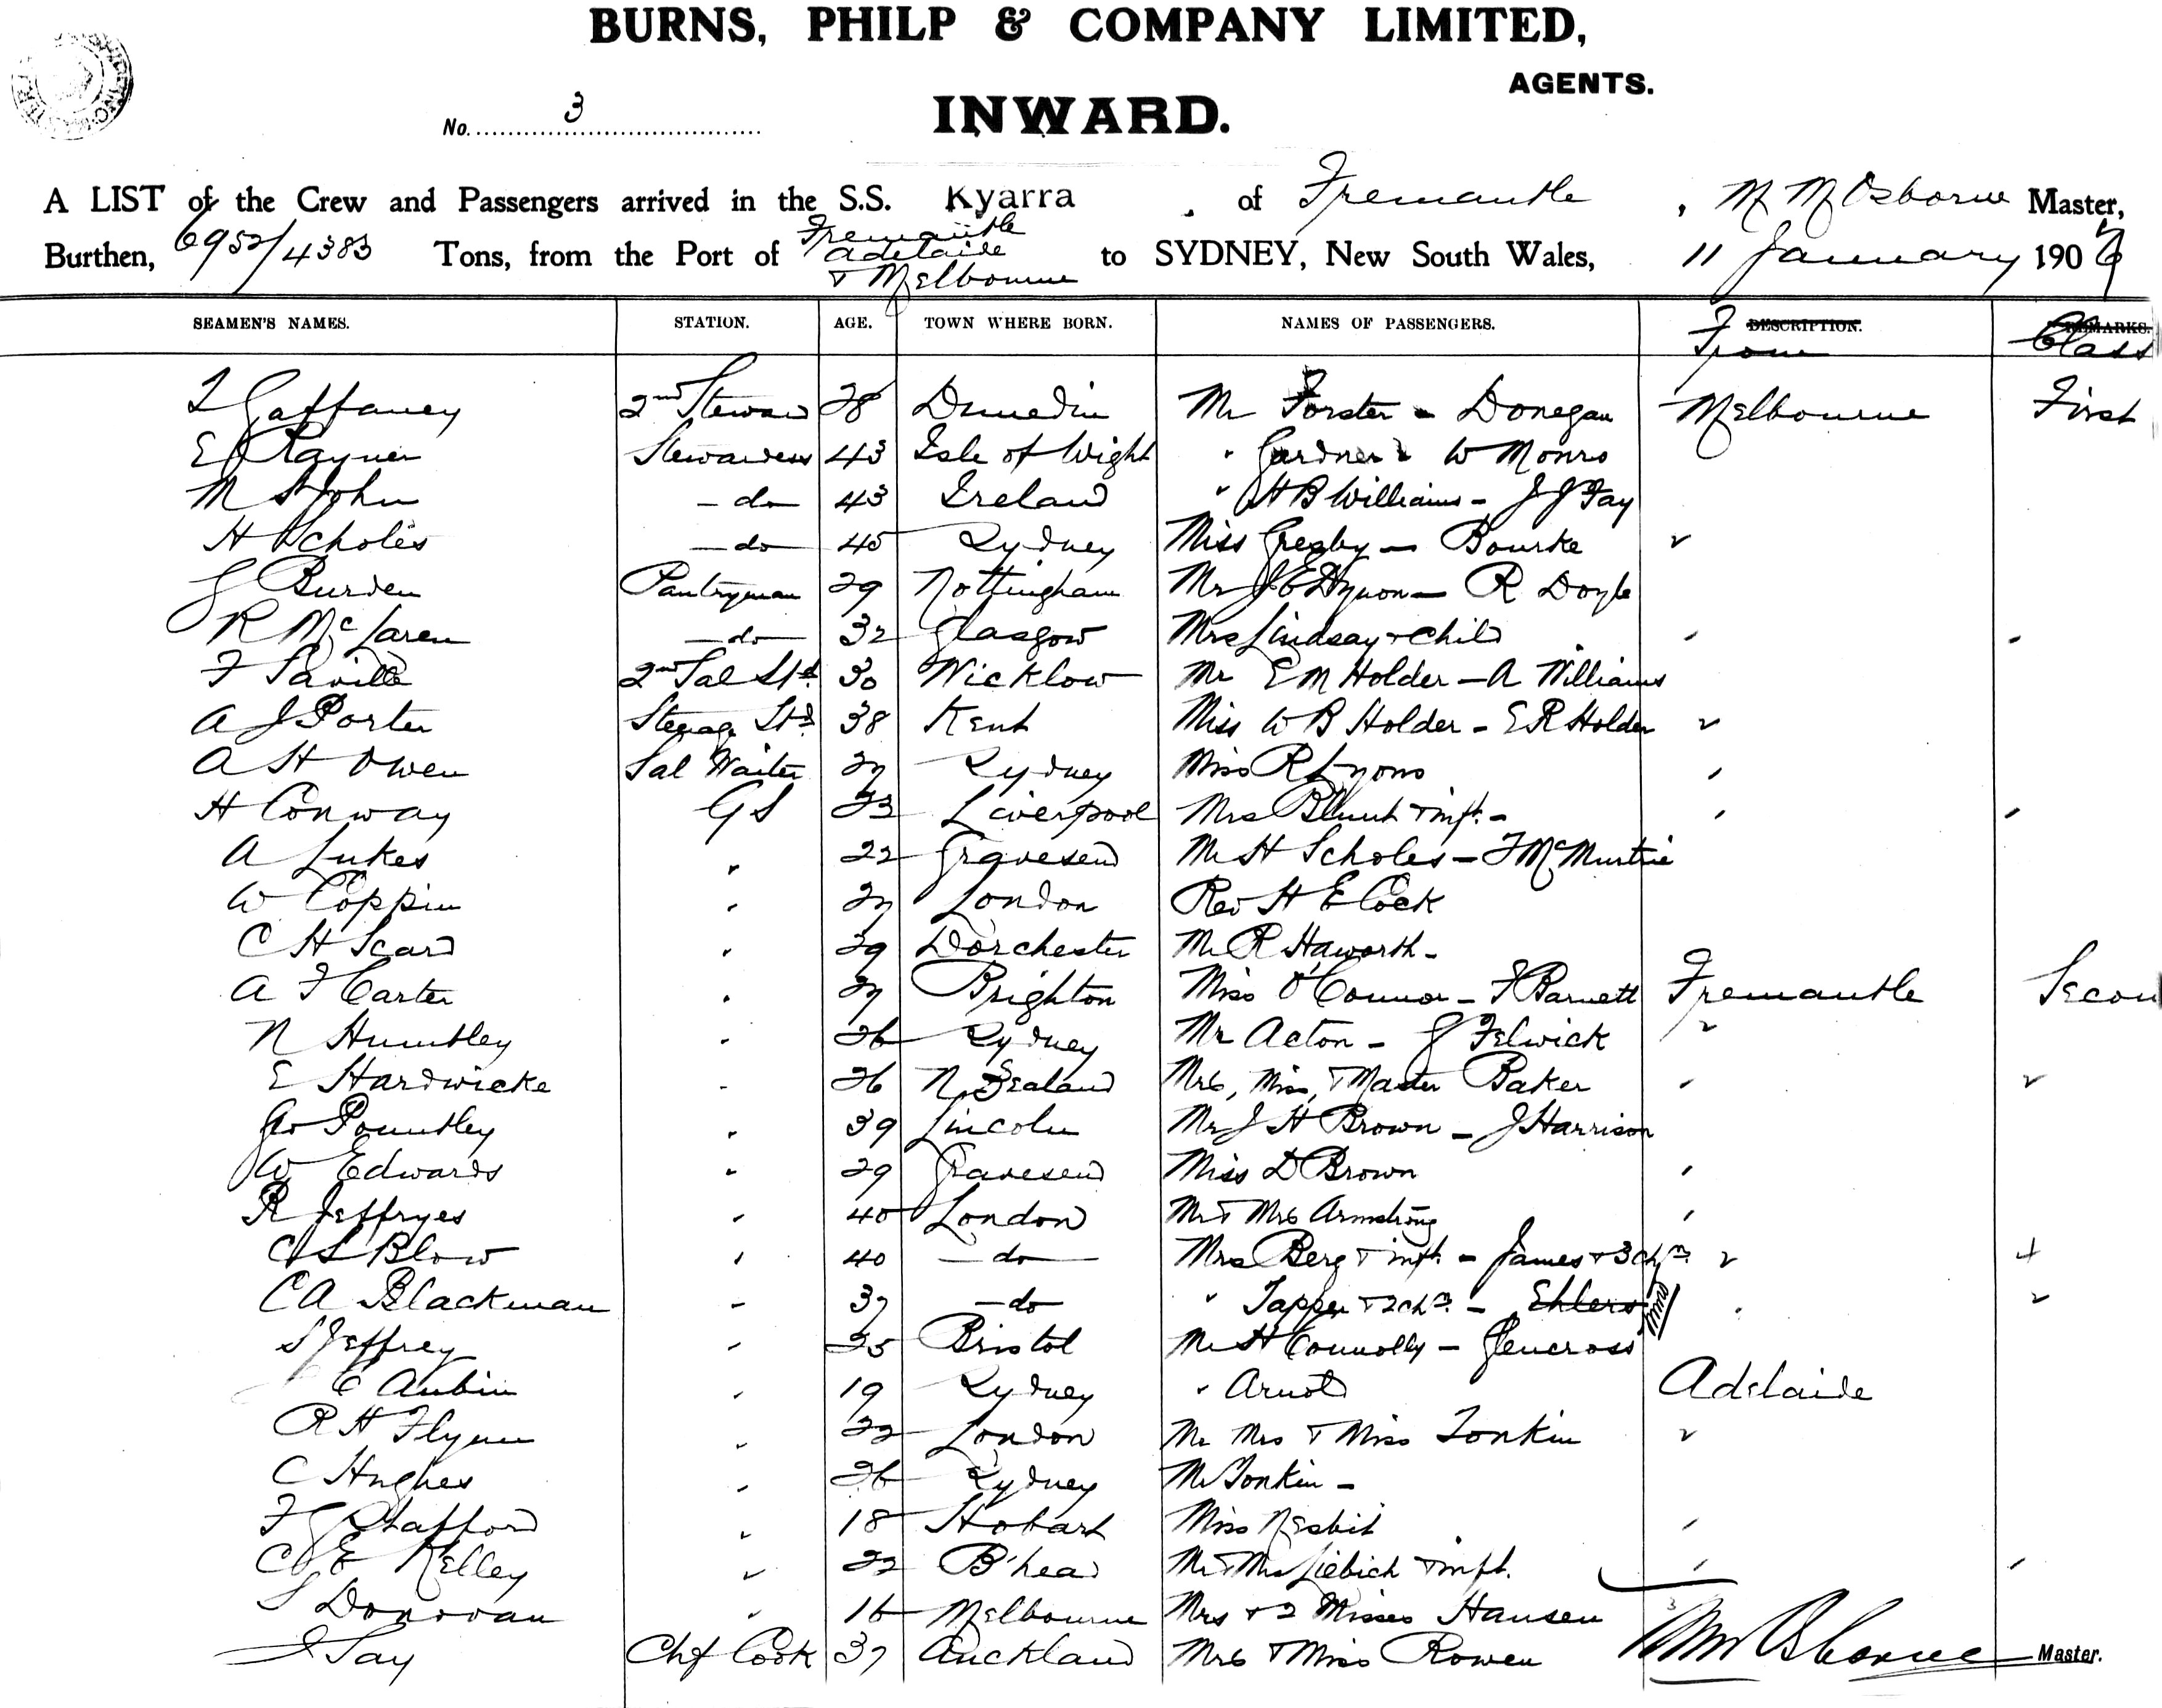 BURNS, PHILP & COMPANY LIMITED,
AGENTS.
No. 3 INWARD.
A LIST of the Crew and Passengers arrived in the S.S. Kyarra of Fremantle, M M Osborne Master,
Burthen, 6952/4383 Tons, from the Port of Fremantle Adelaide & Melbourne to SYDNEY, New South Wales, 11 January 190
SEAMEN'S NAMES. STATION. AGE. TOWN WHERE BORN. NAMES OF PASSENGERS. DESCRIPTION. From REMARKS. Class
Gaffaney 2nd Steward 28 Dunedin Mr Forster - Donegan Melbourne First
E Rayner Stewardess 43 Isle of Wight " Gardner W Monro
M St John - do 43 Ireland " H B Williams - J J Fay
H Scholes - do 45 Sydney Miss Gregby - Bourke "
J Burden Pantryman 29 Nottingham Mr J E Hynon - R Doyle
R McLaren - do - 32 Glasgow Mrs Lindsay & Child " "
F Saville 2nd Sal Std 30 Wicklow Mr E M Holder - A Williams
A J Porter Steerage Std 38 Kent Miss W B Holder - E R Holder "
A H Owen Sal Waiter 27 Sydney Miss R Lyons "
H Conway G S 23 Liverpool Mrs Blunt & inft. - " "
A Lukes " 22 Gravesend Mr H Scholes - F McMurtrie
W Coppin " 27 London Rev H E Cock
C H Scard " 29 Dorchester Mr R Haworth -
A F Carter " 27 Brighton Miss O'Connor - F Barnett Fremantle Secon
N Huntley " 26 Sydney Mr Acton - J Felwick "
E Hardwicke " 26 N Zealand Mrs, Miss, & Master Baker " "
Geo Pountley " 39 Lincoln Mr J H Brown - J Harrison
W Edwards " 29 Gravesend Miss D Brown "
R Jeffryes " 40 London Mr & Mrs Armstrong "
C S Blow " 40 - do - Mrs Berg & inft. - James & 3 chn " "
C A Blackman " 37 - do " Tapper & 2 chn. - Ehlers " "
S Jeffrey " 25 Bristol Mr H Connolly - Glencross
E Aubin " 19 Sydney " Arnold Adelaide
R H Flynn " 22 London Mr Mrs & Miss Tonkin "
C Hughes " 26 Sydney Mr Tonkin -
F G Stafford " 18 Hobart Miss Nesbit "
C E Kelley " 22 B'head Mr & Mrs Liebich & inft. " "
S Donovan " 16 Melbourne Mrs & 2 Misses Hansen
J Say Chf Cook 37 Auckland Mrs & Miss Rowen M M Osborne Master.